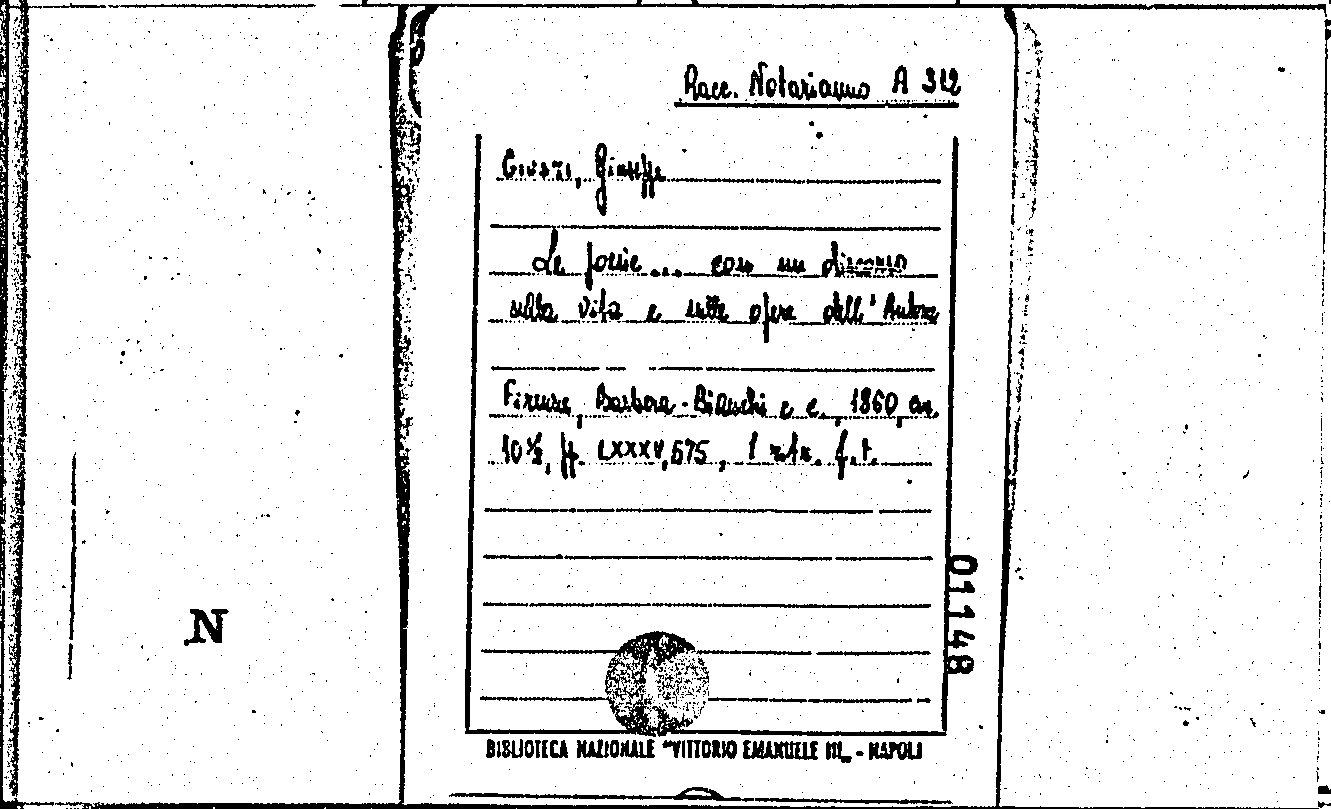 Racc. Notarianno A 312
Giusti, Giuseppe
Le poesie... con un discorso
sulla vita e sulle opere dell'Autore
Firenze, Barbera-Bianchi e c., 1860, cm.
10½, pp. LXXXV,575, 1 ritr. f.t.
01148
N
BIBLIOTECA NAZIONALE "VITTORIO EMANUELE III„ - NAPOLI